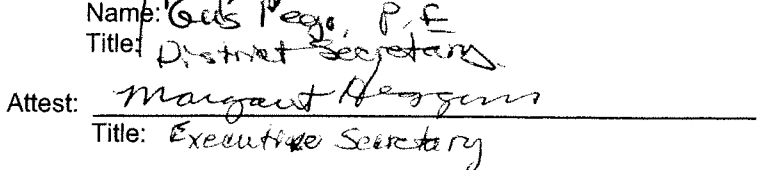 Name: Gus Pego, P.E
Title: District Secretary
Attest: Margaret Higgins
Title: Executive Secretary